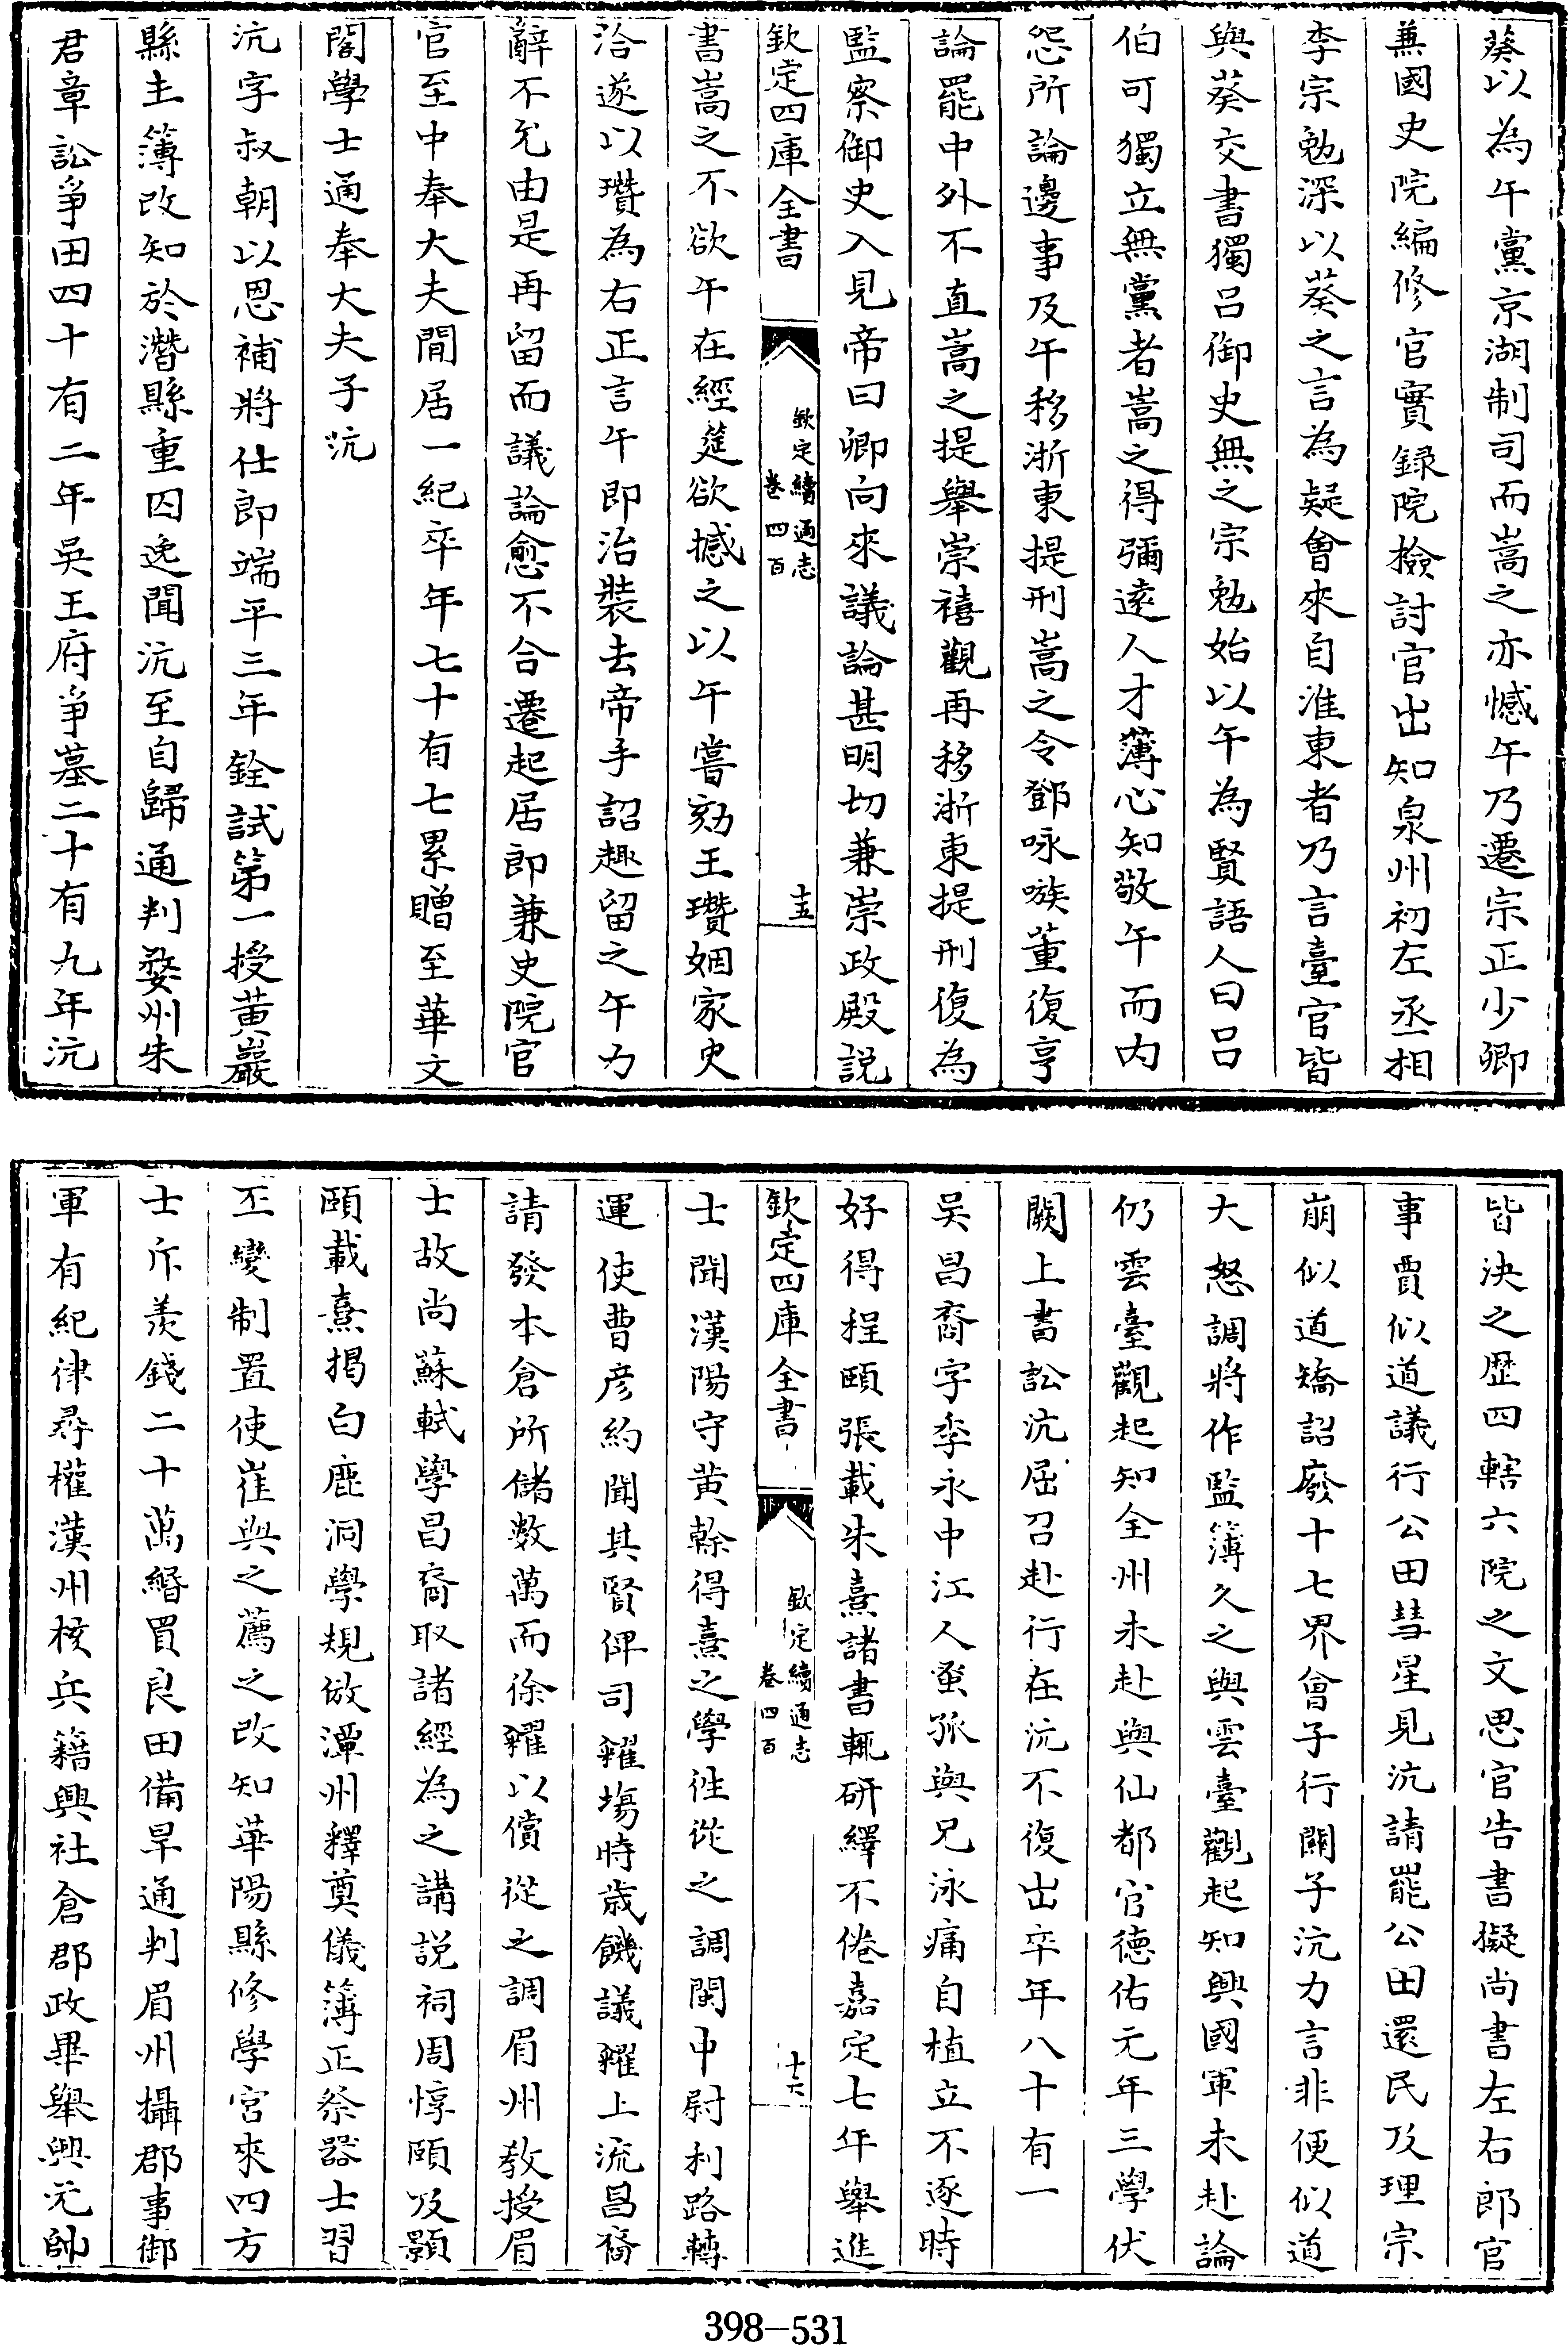 葵以為午黨京湖制司而嵩之亦憾午乃遷宗正少卿
兼國史院編修官實録院檢討官出知泉州初左丞相
李宗勉深以葵之言為疑會來自淮東者乃言臺官皆
與葵交書獨吕御史無之宗勉始以午為賢語人曰吕
伯可獨立無黨者嵩之得彌逺人才薄心知敬午而内
怨所論邊事及午移浙東提刑嵩之令鄧咏嗾董復亨
論罷中外不直嵩之提舉崇禧觀再移浙東提刑復為
監察御史入見帝曰卿向來議論甚明切兼崇政殿説
欽定四庫全書
欽定續通志
卷四百
十五
書嵩之不欲午在經筵欲撼之以午嘗劾王瓚姻家史
洽遂以瓚為右正言午即治裝去帝手詔趣留之午力
辭不允由是再留而議論愈不合遷起居郎兼史院官
官至中奉大夫閒居一紀卒年七十有七累贈至華文
閣學士通奉大夫子沆
沆字叔朝以恩補將仕郎端平三年銓試第一授黄巖
縣主簿改知於潛縣重囚逸聞沆至自歸通判婺州朱
君章訟爭田四十有二年吳王府爭墓二十有九年沆
皆決之歴四轄六院之文思官告書擬尚書左右郎官
事賈似道議行公田彗星見沆請罷公田還民及理宗
崩似道矯詔廢十七界會子行關子沆力言非便似道
大怒調將作監簿久之與雲臺觀起知興國軍未赴論
仍雲臺觀起知全州未赴與仙都官德佑元年三學伏
闕上書訟沆屈召赴行在沆不復出卒年八十有一
吳昌裔字季永中江人蚤孤與兄泳痛自植立不逐時
好得程頤張載朱熹諸書輒研繹不倦嘉定七年舉進
欽定四庫全書
欽定續通志
卷四百
十六
士聞漢陽守黄榦得熹之學徃從之調閬中尉利路轉
運使曹彦約聞其賢俾司糴場時歳饑議糴上流昌裔
請發本倉所儲数萬而徐糴以償從之調眉州教授眉
士故尚蘇軾學昌裔取諸經為之講説祠周惇頤及顥
頤載熹揭白鹿洞學規倣潭州釋奠儀簿正祭器士習
丕變制置使崔與之薦之改知華陽縣修學宫來四方
士斥羡錢二十萬緡買良田備旱通判眉州攝郡事御
軍有紀律尋權漢州核兵籍興社倉郡政畢舉興元帥
398—531